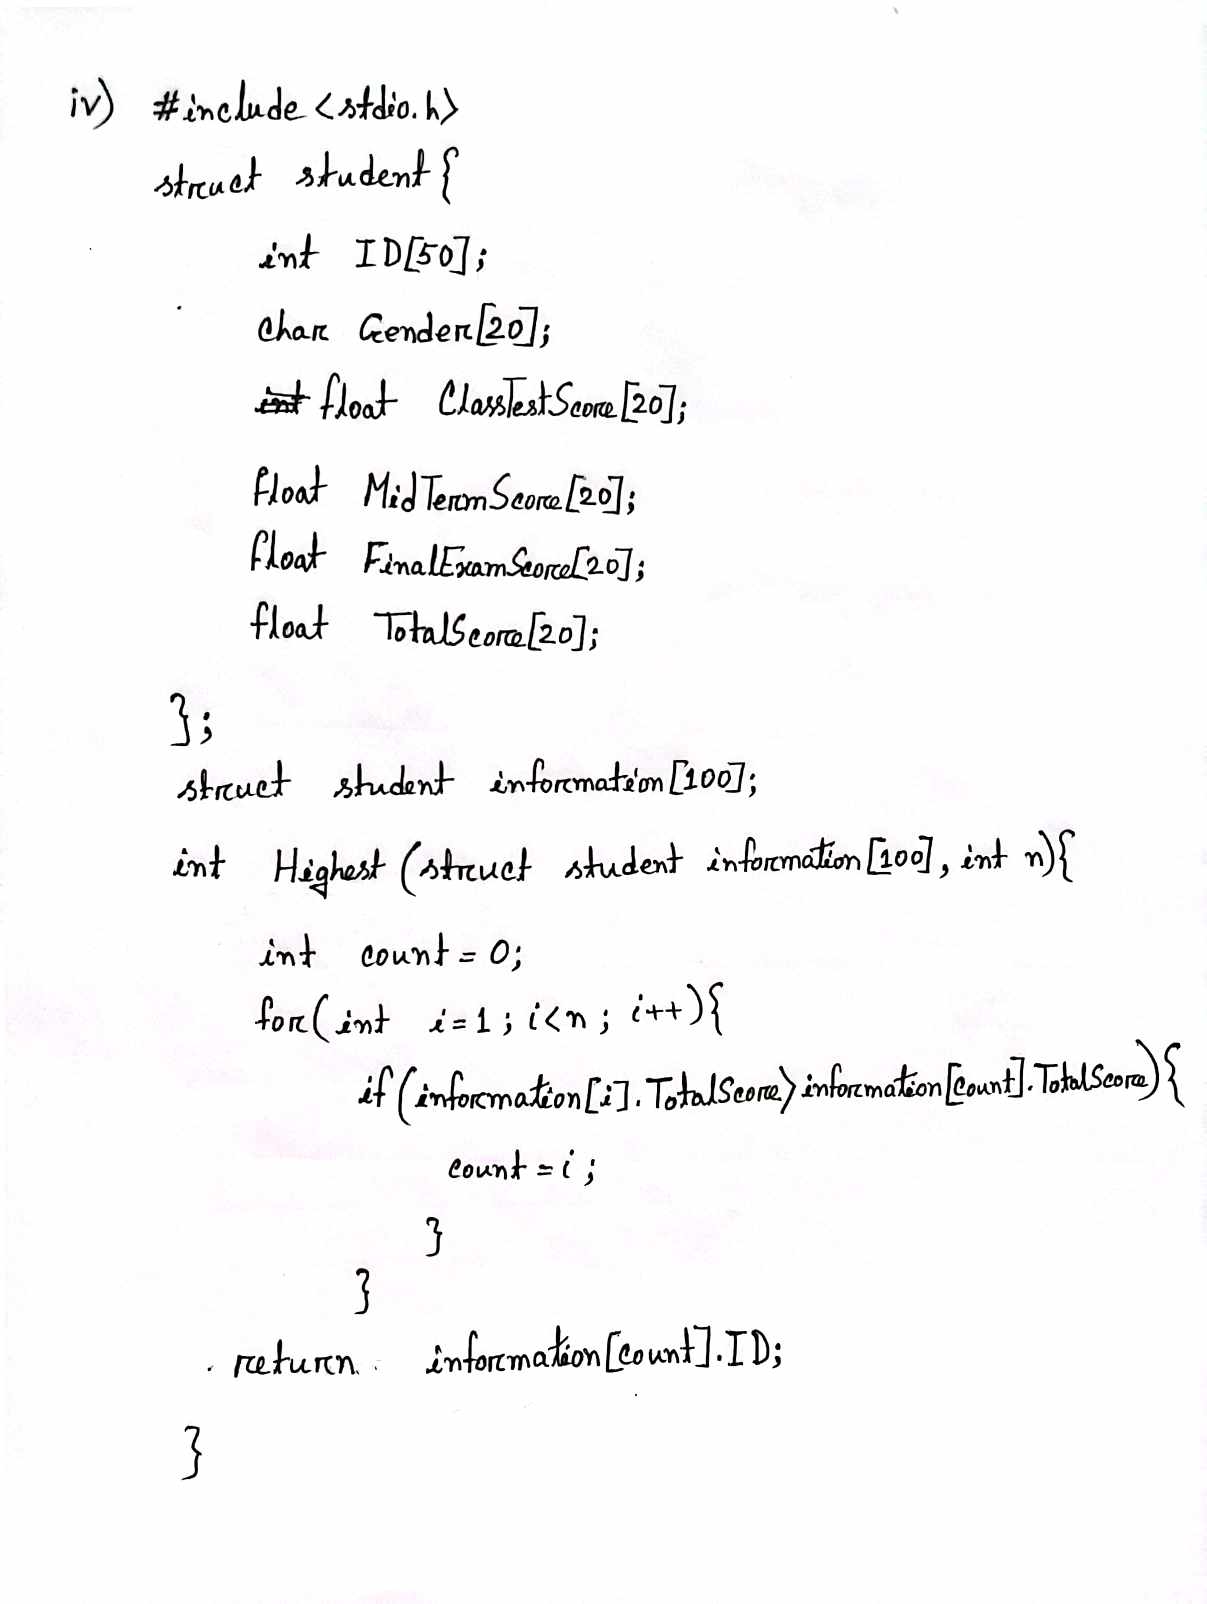 iv) #include <stdio.h>
struct student {
int ID[50];
char Gender[20];
int float ClassTestScore[20];
float MidTermScore[20];
float FinalExamScore[20];
float TotalScore[20];
};
struct student information[100];
int Highest (struct student information[100], int n){
int count = 0;
for(int i=1; i<n; i++){
if (information[i].TotalScore>information[count].TotalScore){
count = i;
}
}
return information[count].ID;
}